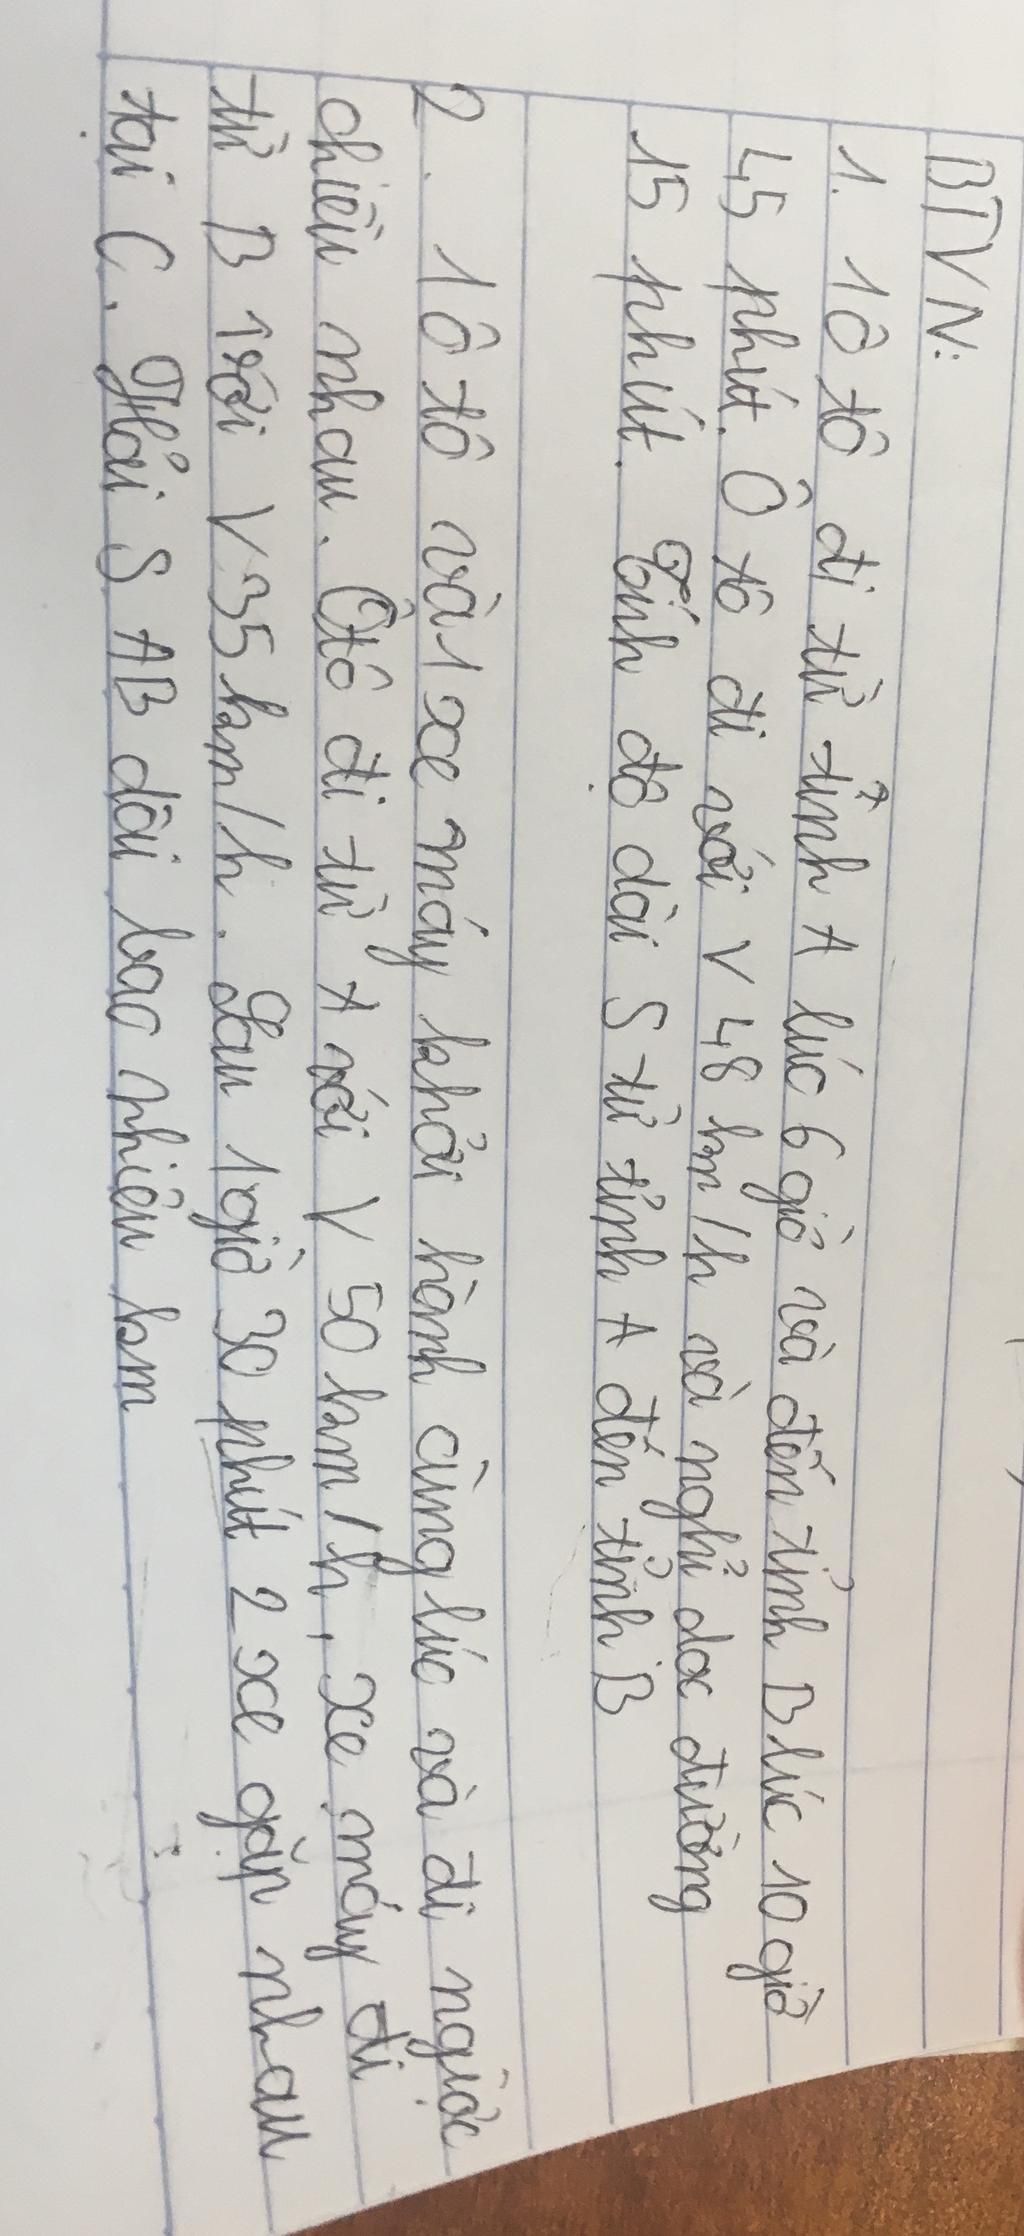 BTVN:
1. 1 ô tô đi từ tỉnh A lúc 6 giờ và đến tỉnh B lúc 10 giờ
45 phút. Ô tô đi với V 48 km/h và nghỉ dọc đường
15 phút. Tính độ dài S từ tỉnh A đến tỉnh B
2. 1 ô tô và 1 xe máy khởi hành cùng lúc và đi ngược
chiều nhau. Ôtô đi từ A với V 50 km/h, xe máy đi
từ B với V 35 km/h. Sau 1 giờ 30 phút 2 xe gặp nhau
tại C. Hỏi S AB dài bao nhiêu km